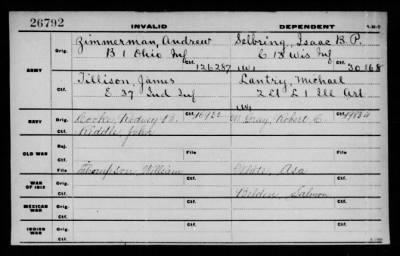 26792
INVALID DEPENDENT
ARMY
Orig. Zimmerman, Andrew Orig. Selbring, Isaac B. P.
B 1 Ohio Inf C 13 Wis Inf
Ctf. 126287 Ctf. 30168
Tillison, James Lantry, Michael
E 37 Ind Inf 2 Lt L 1 Ill Art
NAVY
Orig. Cooke, Rodney Ctf. Orig. McCray, Robert C. Ctf.
Riddle, John
OLD WAR
Rej.
File
Ctf.
WAR OF 1812
Orig. Thompson, William White, Asa
Ctf. Belden, Salmon
MEXICAN WAR
Orig.
Ctf.
INDIAN WAR
Orig.
Ctf.